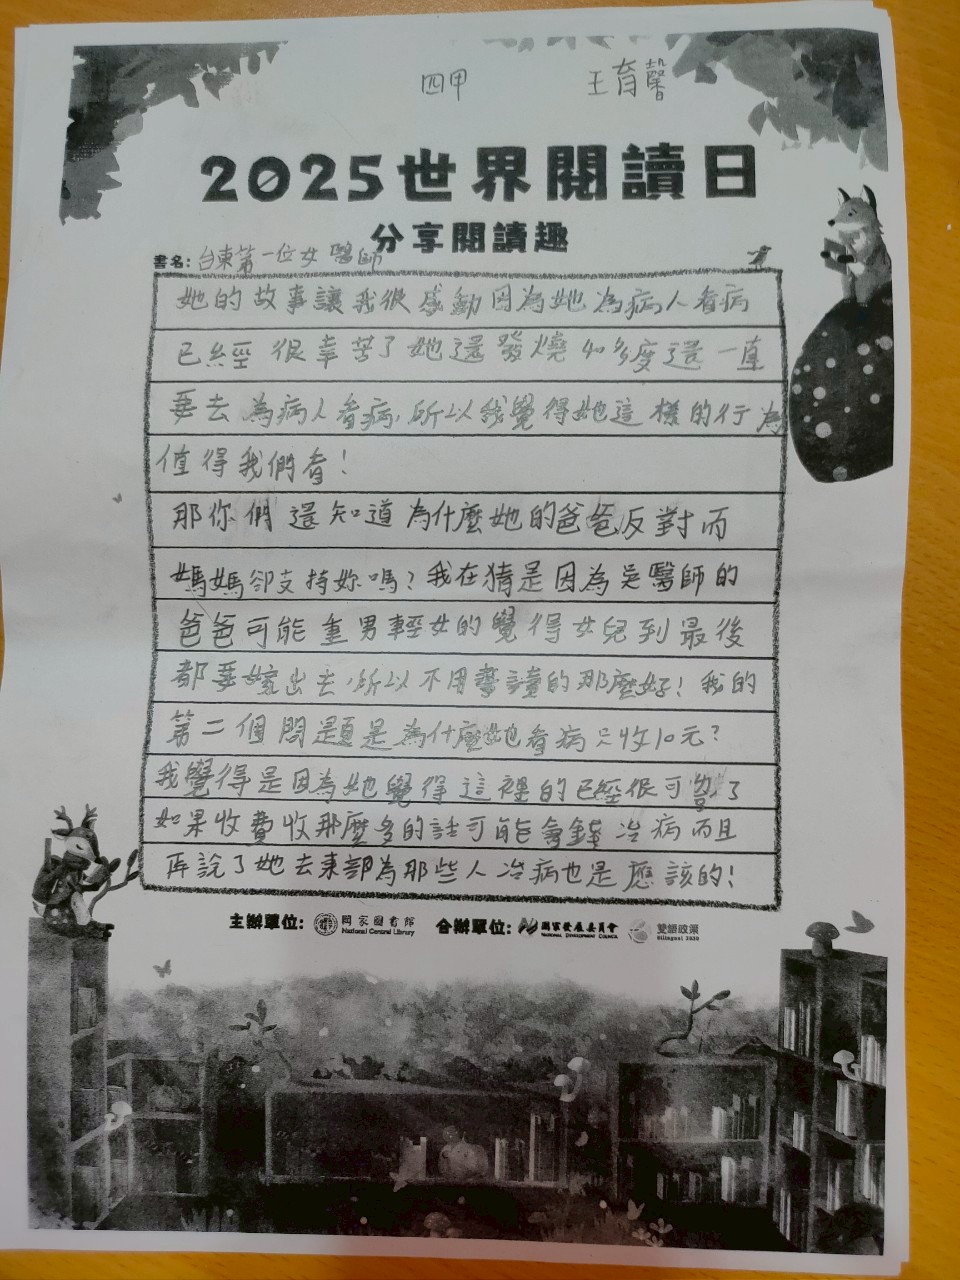 四甲 王育馨
2025世界閱讀日
分享閱讀趣
書名: 台東第一位女醫師
她的故事讓我很感動因為她為病人看病
已經很幸苦了她還發燒40多度還一直
要去為病人看病,所以我覺得她這樣的行為
值得我們看!
那你們還知道為什麼她的爸爸反對而
媽媽卻支持妳嗎?我在猜是因為吳醫師的
爸爸可能重男輕女的覺得女兒到最後
都要嫁出去,所以不用書讀的那麼好!我的
第二個問題是為什麼她看病只收10元?
我覺得是因為她覺得這裡的已經很可憐了
如果收費收那麼多的話可能會錢治病而且
再說了她去東部為那些人治病也是應該的!
主辦單位: 國家圖書館 National Central Library 合辦單位: 國家發展委員會 NATIONAL DEVELOPMENT COUNCIL 雙語政策 Bilingual 2030